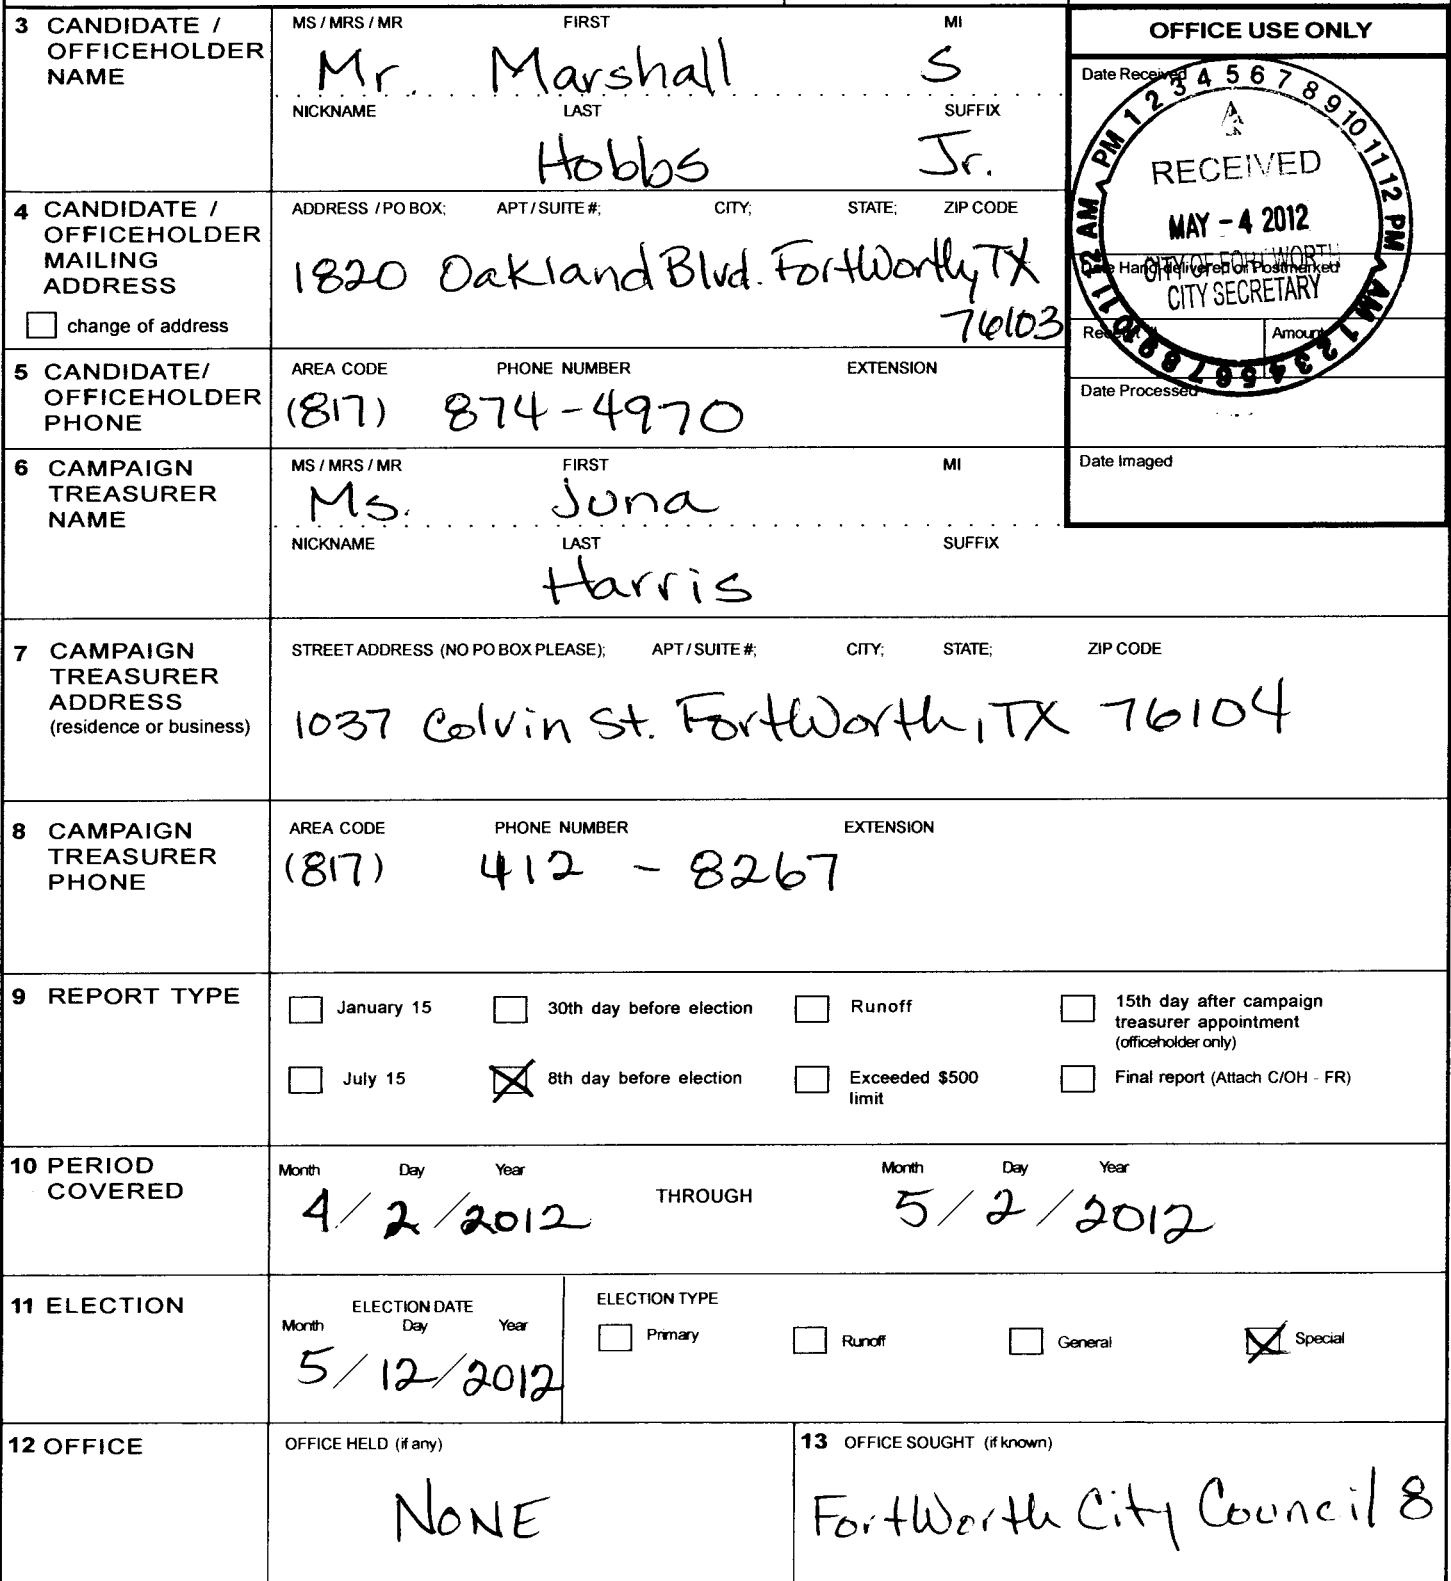 3 CANDIDATE / OFFICEHOLDER NAME
MS / MRS / MR FIRST MI
Mr. Marshall S
NICKNAME LAST SUFFIX
Hobbs Jr.
OFFICE USE ONLY
Date Received
PM 1 2 3 4 5 6 7 8 9 10 11 12 PM
AM 1 2 3 4 5 6 7 8 9 10 11 12 AM
RECEIVED
MAY - 4 2012
CITY OF FORT WORTH
CITY SECRETARY
Date Hand-delivered or Postmarked
Receipt # Amount
Date Processed
Date Imaged
4 CANDIDATE / OFFICEHOLDER MAILING ADDRESS
change of address
ADDRESS / PO BOX; APT / SUITE #; CITY; STATE; ZIP CODE
1820 Oakland Blvd. Fort Worth, TX
76103
5 CANDIDATE/ OFFICEHOLDER PHONE
AREA CODE PHONE NUMBER EXTENSION
(817) 874-4970
6 CAMPAIGN TREASURER NAME
MS / MRS / MR FIRST MI
Ms. Juna
NICKNAME LAST SUFFIX
Harris
7 CAMPAIGN TREASURER ADDRESS
(residence or business)
STREET ADDRESS (NO PO BOX PLEASE); APT / SUITE #; CITY; STATE; ZIP CODE
1037 Colvin St. Fort Worth, TX 76104
8 CAMPAIGN TREASURER PHONE
AREA CODE PHONE NUMBER EXTENSION
(817) 412 - 8267
9 REPORT TYPE
January 15 30th day before election Runoff 15th day after campaign treasurer appointment (officeholder only)
July 15 8th day before election Exceeded $500 limit Final report (Attach C/OH - FR)
10 PERIOD COVERED
Month Day Year Month Day Year
4/2/2012 THROUGH 5/2/2012
11 ELECTION
ELECTION DATE
Month Day Year
5/12/2012
ELECTION TYPE
Primary Runoff General Special
12 OFFICE
OFFICE HELD (if any)
NONE
13 OFFICE SOUGHT (if known)
Fort Worth City Council 8